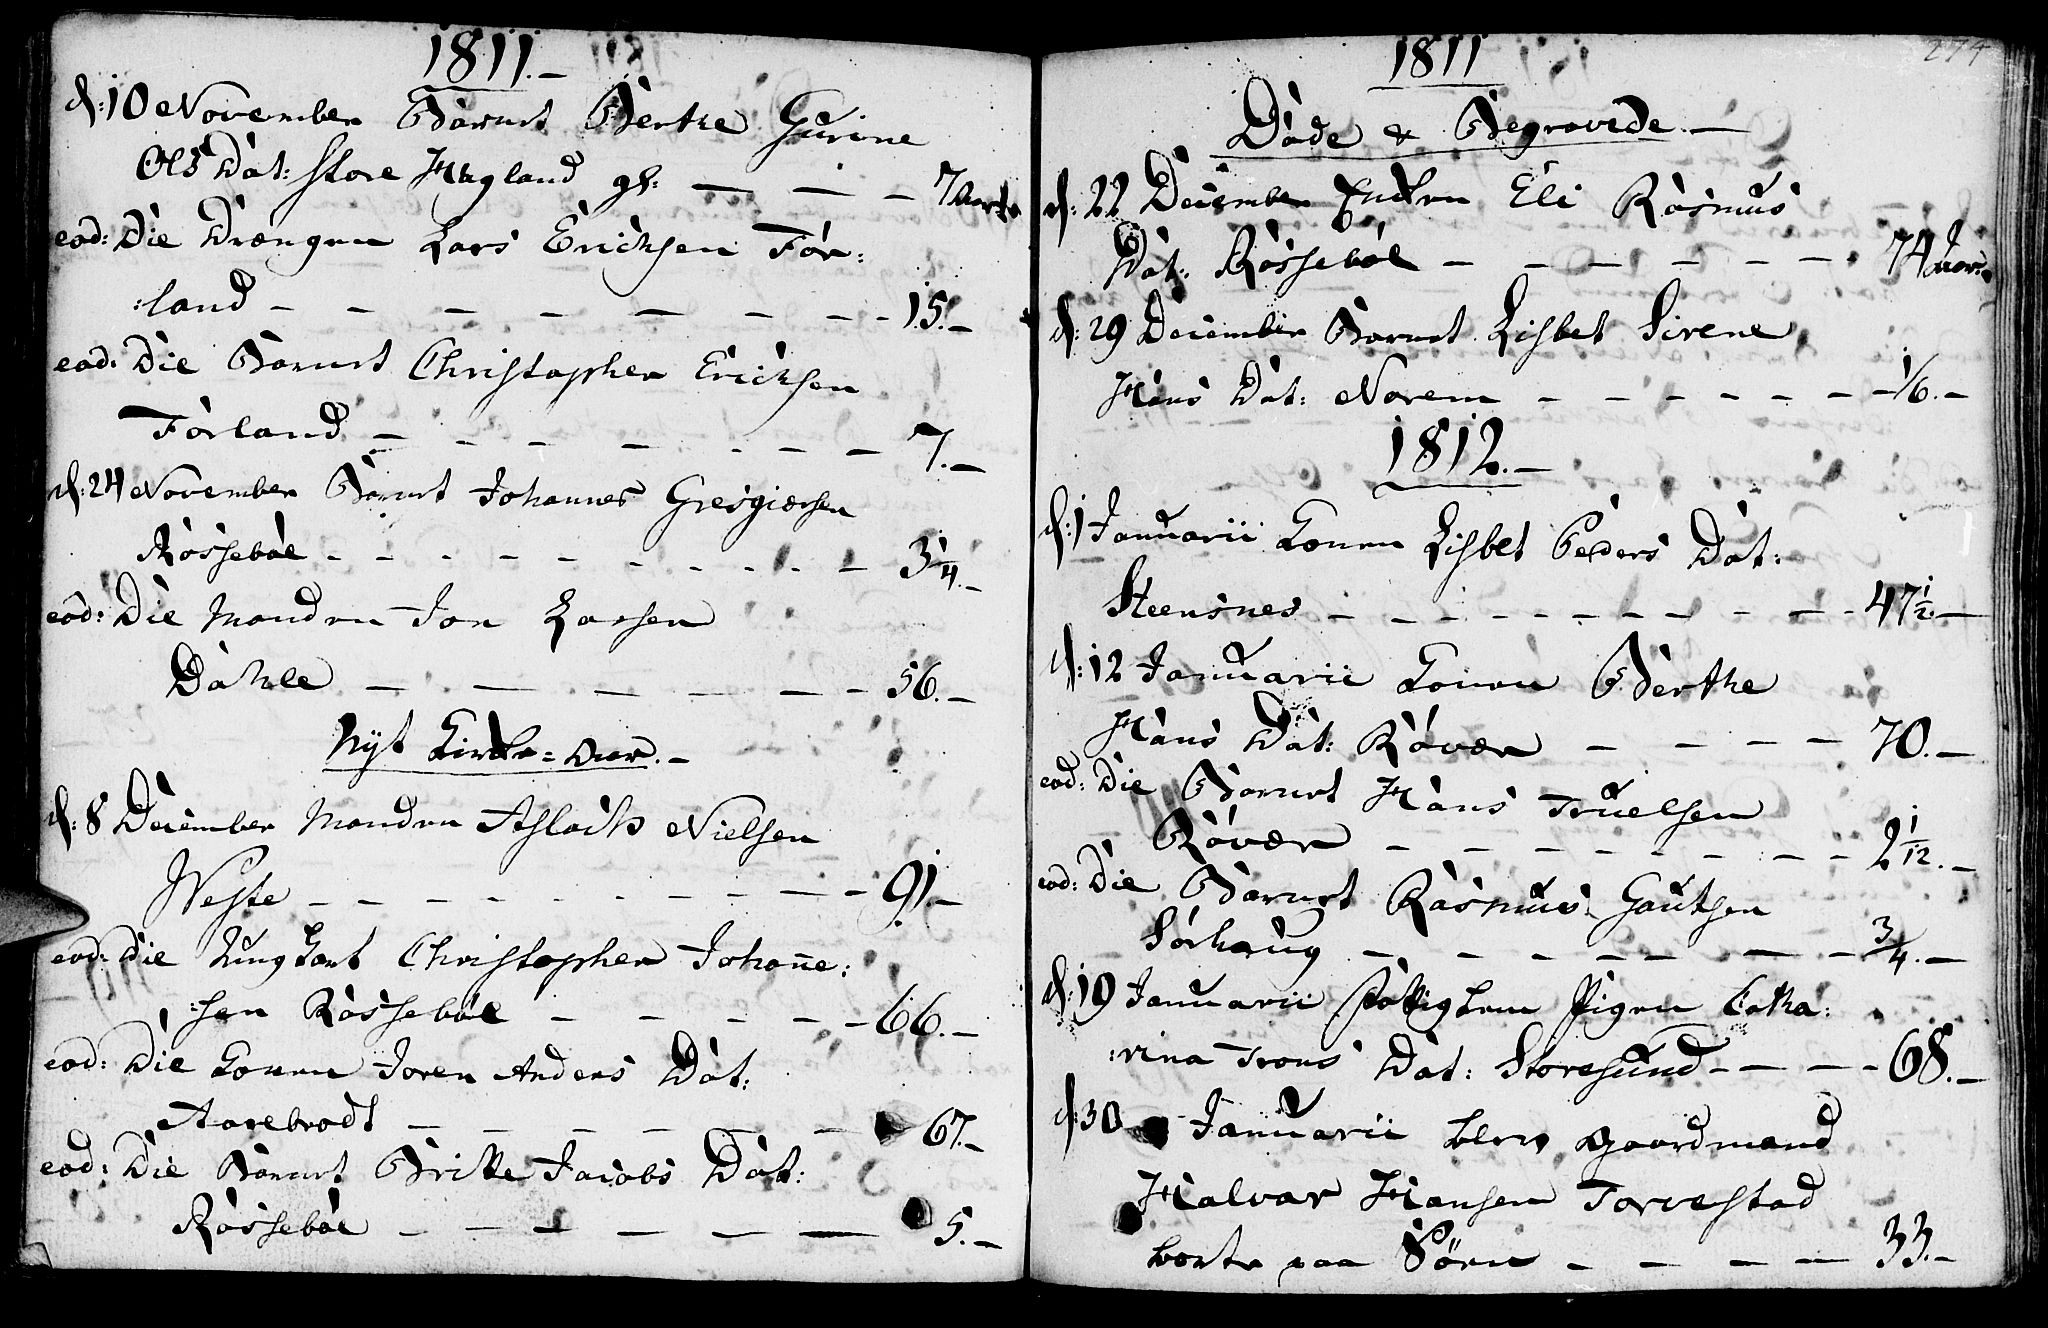 1811.-
d: 10 November Barnet Berthe Gurine
Ols Dat: Store Hagland gl: — — - 7 Aar
eod: Die Drængen Lars Erichsen Før:
:land - - - - - - - - 15.-
eod: Die Barnet Christopher Erichsen
Førland - - - - - - - 7.-
d: 24 November Barnet Johannes Gresgiersen
Røssebøe - - - - - - - - 3 1/4.-
eod: Die Manden Jon Larsen
Dahle - - - - - - 56.-
Nyt Kirke=Aar.-
d: 8 December Manden Aslach Nielsen
Weste - - - - - - - - 91.-
eod: Die Ungkart Christopher Johañe:
:sen Røssebøe - - - - - 66.-
eod: Die Konen Joren Anders Dat:
Aarebrodt - - - - - - 67.-
eod: Die Barnet Britte Jacobs Dat:
Røssebøe - - - - - - 5.-
1811
274
Døde & Begravede.-
d: 22 December Enken Eli Rasmus
Dat: Røssebøe - - - - - - - 74 Aar
d: 29 December Barnet Lisbet Sirene
Hans Dat: Norem - - - - - - - 1/6.-
1812.-
d: 1 Januarii Konen Lisbet Peders Dat:
Steensnes - - - - - - - - - 47 1/2.-
d: 12 Januarii Konen Berthe
Hans Dat: Røvær - - - - 70.-
eod: Die Barnet Hans Truelsen
Røvær - - - - - - - - 2 1/12.-
eod: Die Barnet Rasmus Gautsen
Sørhaug - - - - - - - - 3/4.-
d: 19 Januarii Pigen Catha:
:rina Trons Dat: Storesund - - - - 68.-
d: 30 Januarii blev Gaardmand
Halvar Hansen Torvestad
borte paa Søen - - - - 33.-